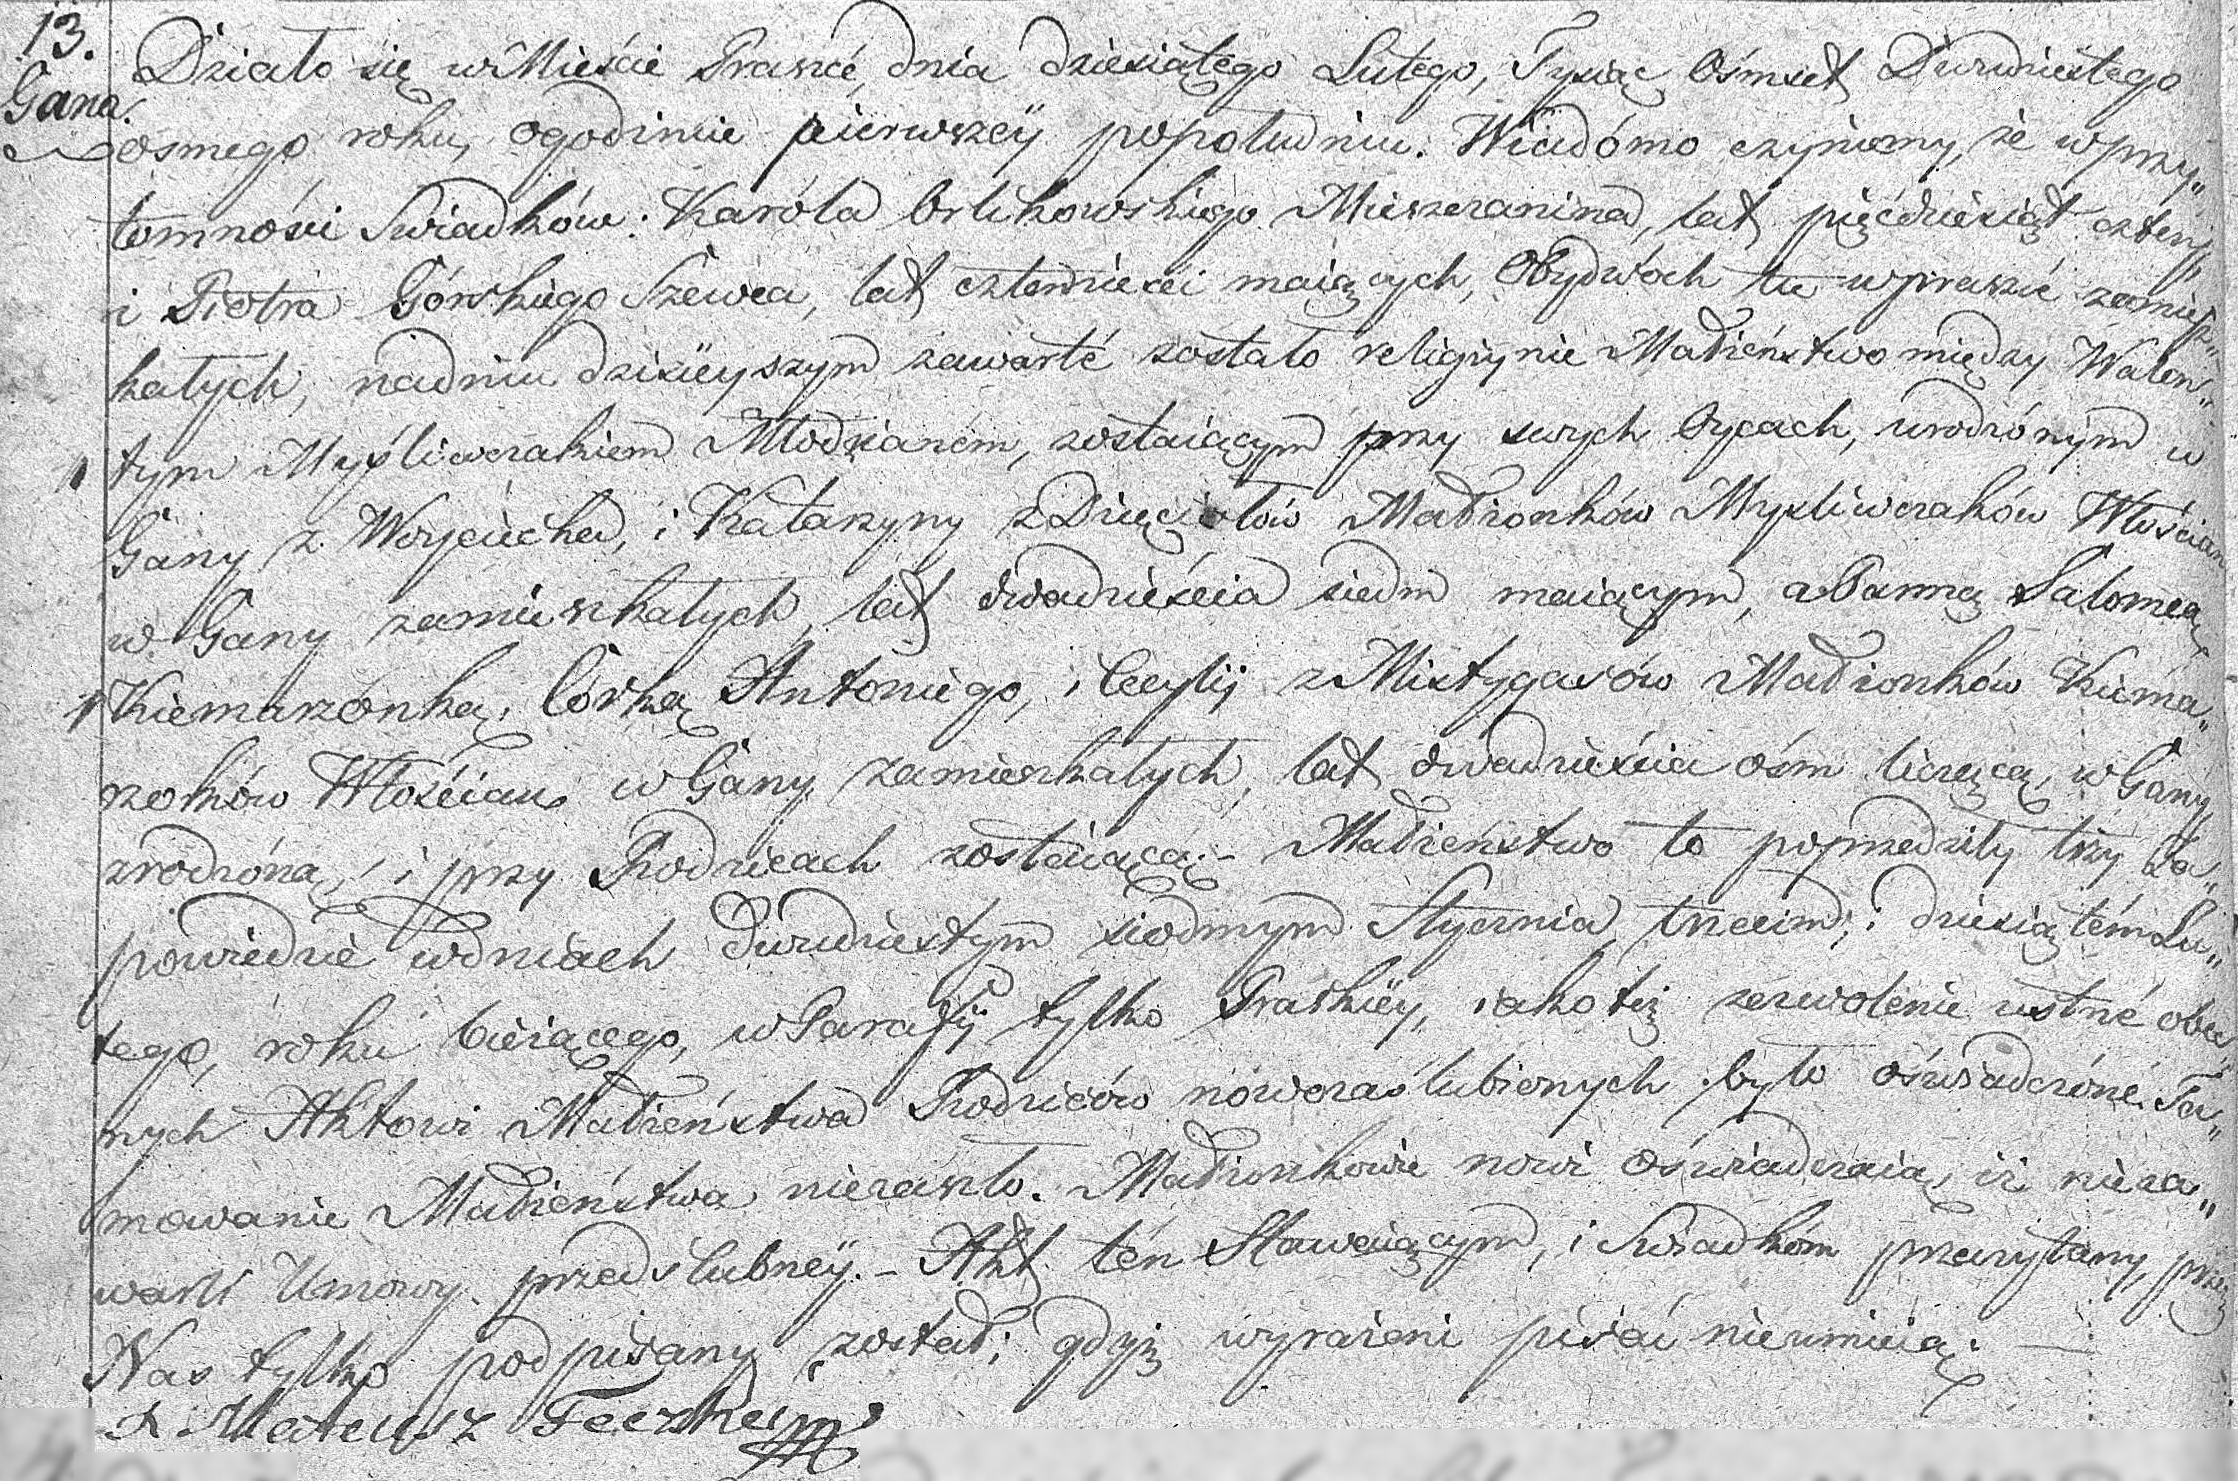 13.
Gana.
Działo się w Mieście Praszce, dnia dziesiątego Lutego, Tysiąc Ośmset Dwudziestego
osmego roku, ogodzinie pierwszeÿ popołudniu. Wiadómo czyniemy, że wprzy„
tomności Swiadków: Karóla Orlikowskiego Mieszczanina, lat pięćdziesiąt cztery,
i Piotra Górskiego Szewca, lat czterdzieści maiących, Obydwóch tu wpraszce zamiesz„
kałych, nadniu dzisieyszym zawarté zostało religiynie Małżeństwo między Walen„
tym Myśliwczakiem Młodzianem, zostaiącym przy swych Oycach, urodzónym w
Gany z Woyciecha, i Katarzyny z Dzięciołów Małżonków Mysliwczaków Włościan
w Gany zamieszkałych, lat dwadzieścia siedm maiącym, a Panną Salomeą
Kiemarzónką, Córką Antoniego, i Cecylij z Mistygaców Małżonków Kiema„
rzołków Włościan w Gany zamieszkałych, lat dwadzieścia ośm liczącą, w Gany
zrodzóną, i przy Rodzicach zostaiącą. – Małżeństwo to poprzedziły trzy Za„
powiedzie wdniach Dwudziestym siodmym Stycznia, trzecim, i dziesiątém Lu„
tego, roku bieżącego, w Parafij tylko Praskiéy, iako też zezwolenie ustné obec„
nych Aktowi Małżeństwa Rodziców nówozaślubionych było oświadczóné. Ta„
mowanie Małżeństwa niezaszło. Małżonkowie nowi oświadczaią, iż nieza„
warli Umowy przedślubneÿ. – Akt tén Stawaiącym, i Swiadkom przeczytany, przez
Nas tylko podpisany został; gdyż wyrażeni pisać nieumieią. —
X. Mateusz